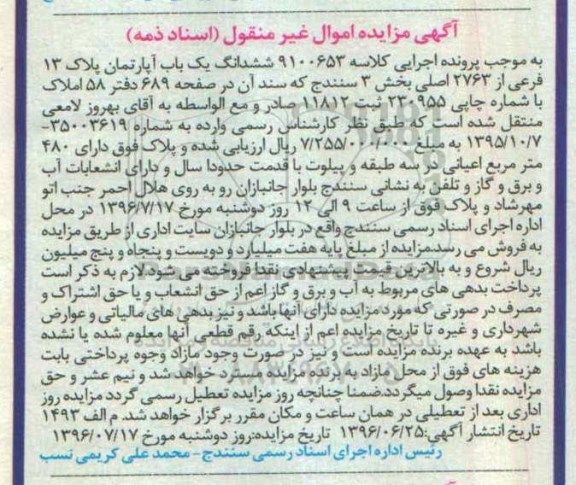 آگهی مزایده اموال غیر منقول (اسناد ذمه)
به موجب پرونده اجرایی کلاسه ۹۱۰۰۶۵۳ ششدانگ یک باب آپارتمان پلاک ۱۳
فرعی از ۲۷۶۳ اصلی بخش ۳ سنندج که سند آن در صفحه ۶۸۹ دفتر ۵۸ املاک
با شماره چاپی ۲۳۰۹۵۵ ثبت ۱۱۸۱۲ صادر و مع الواسطه به آقای بهروز لامعی
منتقل شده است که طبق نظر کارشناس رسمی وارده به شماره ۳۵۰۰۳۶۱۹-
۱۳۹۵/۱۰/۷ به مبلغ ۷/۲۵۵/۰۰۰/۰۰۰ ریال ارزیابی شده و پلاک فوق دارای ۴۸۰
متر مربع اعیانی در سه طبقه و پیلوت با قدمت حدودا سال و دارای انشعابات آب
و برق و گاز و تلفن به نشانی سنندج بلوار جانبازان رو به روی هلال احمر جنب اتو
مهرشاد و پلاک فوق از ساعت ۹ الی ۱۲ روز دوشنبه مورخ ۱۳۹۶/۷/۱۷ در محل
اداره اجرای اسناد رسمی سنندج واقع در بلوار جانبازان سایت اداری از طریق مزایده
به فروش می رسد.مزایده از مبلغ پایه هفت میلیارد و دویست و پنجاه و پنج میلیون
ریال شروع و به بالاترین قیمت پیشنهادی نقدا فروخته می شود.لازم به ذکر است
پرداخت بدهی های مربوط به آب و برق و گاز اعم از حق انشعاب و یا حق اشتراک و
مصرف در صورتی که مورد مزایده دارای آنها باشد و نیز بدهی های مالیاتی و عوارض
شهرداری و غیره تا تاریخ مزایده اعم از اینکه رقم قطعی آنها معلوم شده یا نشده
باشد به عهده برنده مزایده است و نیز در صورت وجود مازاد وجوه پرداختی بابت
هزینه های فوق از محل مازاد به برنده مزایده مسترد خواهد شد و نیم عشر و حق
مزایده نقدا وصول میگردد.ضمنا چنانچه روز مزایده تعطیل رسمی گردد مزایده روز
اداری بعد از تعطیلی در همان ساعت و مکان مقرر برگزار خواهد شد. م الف ۱۴۹۳
تاریخ انتشار آگهی:۱۳۹۶/۰۶/۲۵ تاریخ مزایده:روز دوشنبه مورخ ۱۳۹۶/۰۷/۱۷
رئیس اداره اجرای اسناد رسمی سنندج - محمد علی کریمی نسب